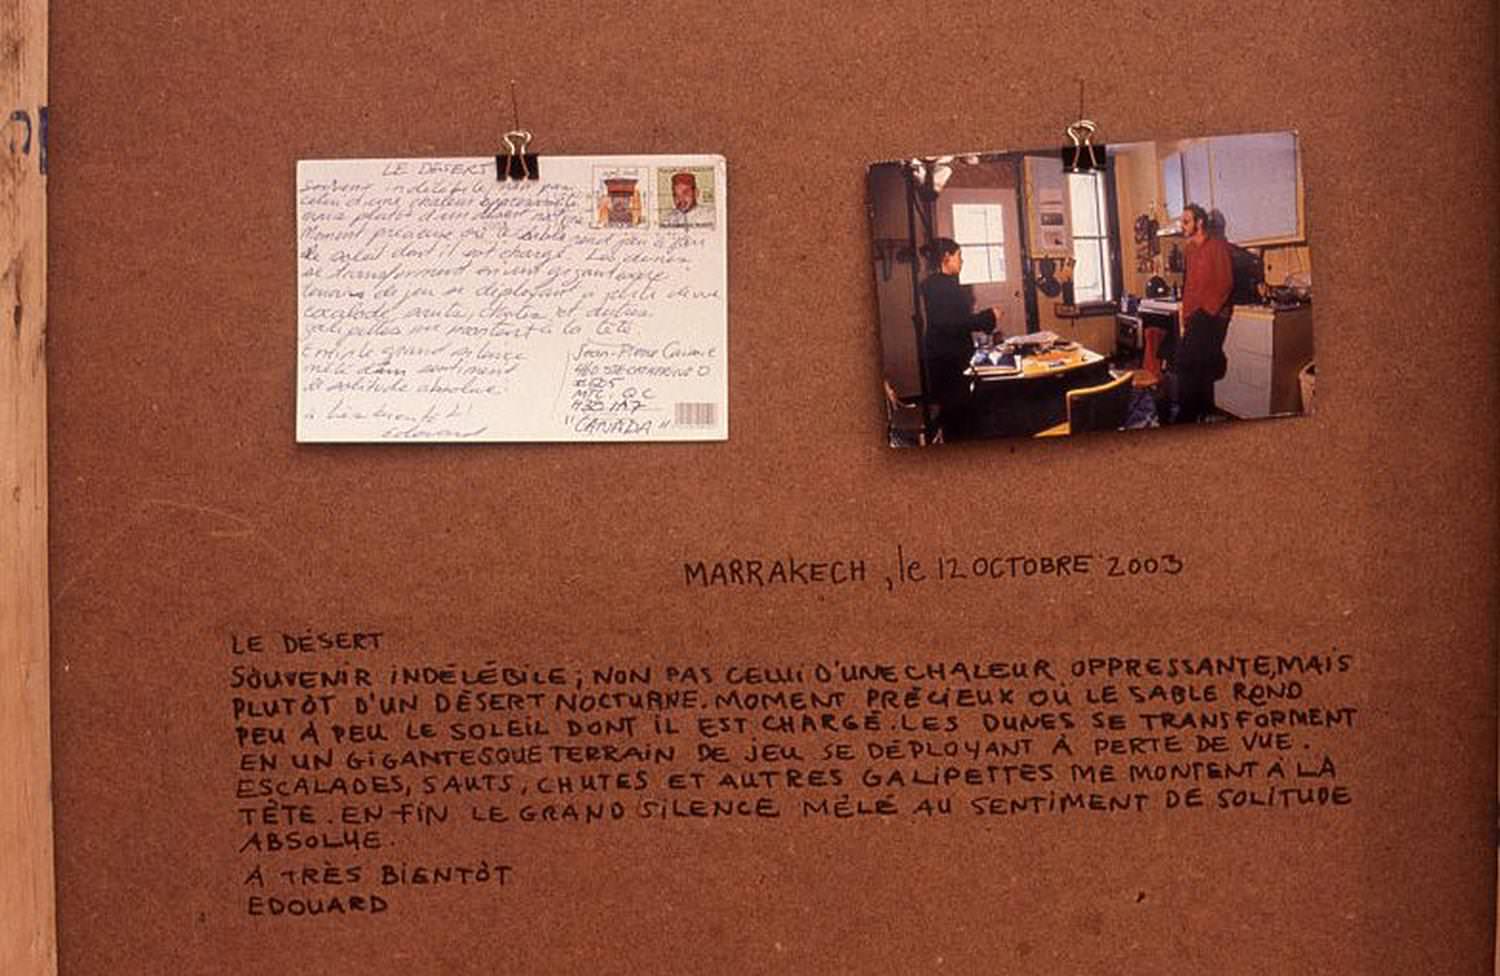 LE DÉSERT
Souvenir indélébile, non pas
celui d'une chaleur oppressante
mais plutôt d'un désert
Moment précieux où le sable rend peu à peu
le soleil dont il est chargé. Les dunes
se transforment en un gigantesque
terrain de jeu se déployant à perte de vue
escalade, sauts, chutes et autres
galipettes me montent à la tête.
Enfin le grand silence
mêlé d'un sentiment
de solitude absolue.
à très bientôt!
Edouard
Jean-Pierre
460 STE-CATHERINE O
#605
MTL. QC
H3B 1A7
"CANADA"
MARRAKECH, le 12 OCTOBRE 2003
LE DÉSERT
SOUVENIR INDÉLÉBILE; NON PAS CELUI D'UNE CHALEUR OPPRESSANTE, MAIS
PLUTÔT D'UN DÉSERT NOCTURNE. MOMENT PRÉCIEUX OÙ LE SABLE REND
PEU À PEU LE SOLEIL DONT IL EST CHARGÉ. LES DUNES SE TRANSFORMENT
EN UN GIGANTESQUE TERRAIN DE JEU SE DÉPLOYANT À PERTE DE VUE.
ESCALADES, SAUTS, CHUTES ET AUTRES GALIPETTES ME MONTENT À LA
TÊTE. EN FIN LE GRAND SILENCE MÊLÉ AU SENTIMENT DE SOLITUDE
ABSOLUE.
À TRÈS BIENTÔT
EDOUARD